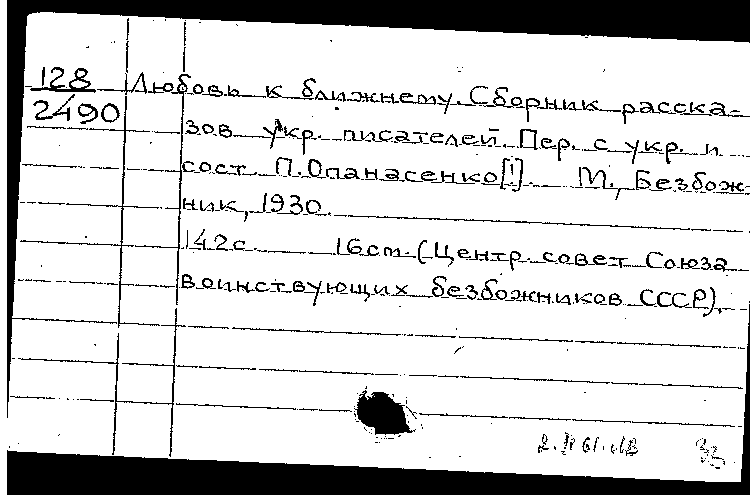 128 Любовь к ближнему. Сборник расска-
2490 зов укр. писателей. Пер. с укр. и
сост. П. Опанасенко[!]. М., Безбож-
ник, 1930.
142с. 16cm. (Центр. совет Союза
воинствующих безбожников СССР).
33